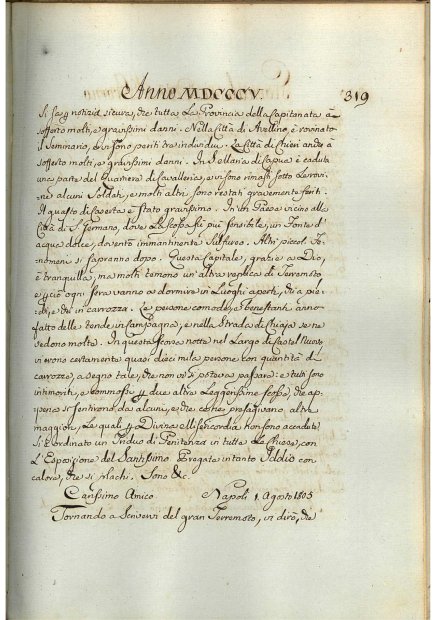 Anno MDCCCV. 319
Si ha q notizia sicura, che tutta la Provincia della Capitanata à
sofferto molti, e gravissimi danni. Nella Città di Avellino, è rovinato
il Seminario, ed ivi son periti tre individui. La Città di Chieti anche à
sofferto molti, e gravissimi danni. In S. Maria di Capua è caduta
una parte del Quartiere di Cavalleria, e vi sono rimasti sotto le rovi-
ne alcuni Soldati, e molti altri sono restati gravemente feriti.
Il guasto di Caserta è stato gravissimo. In un Paese vicino alla
Città di S. Germano, dove la scossa fu più sensibile, un Fonte d'
acqua dolce, doventò immantinente sulfureo. Altri piccoli Fe-
nomeni si sapranno dopo. Questa Capitale, grazie a Dio,
è tranquilla; ma molti temono un'altra replica di Terremoto
e perciò ogni sera vanno a dormire in Luoghi aperti, chi a pie-
di, e chi in carrozza. Le persone comode, e benestanti anno
fatto delle tende in campagna, e nella Strada di Chiaja se ne
vedono molte. In questa scorsa notte nel Largo di Castel Nuovo
vi erono certamente quasi dieci mila persone con quantità di
carrozze, a segno tale, che non vi si poteva passare: e tutti sono
intimoriti, e commossi p due altre Leggerissime scosse, che ap-
pena si sentirono da alcuni, e che come presagivano altre
maggiori, le quali p Divina Misericordia non sono accadute.
Si è ordinato un Triduo di Penitenza in tutte le Chiese, con
L'Esposizione del Santissimo. Pregate intanto Iddio con
calore, che si plachi. Sono &c.
Carissimo Amico Napoli 1. Agosto 1805
Tornando a scrivervi del gran Terremoto, vi dirò, che